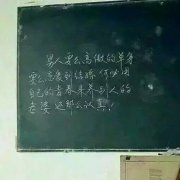 男人要么高傲的单身
要么恋爱到结婚 何必用
自己的青春来养别人的
老婆 还那么认真!